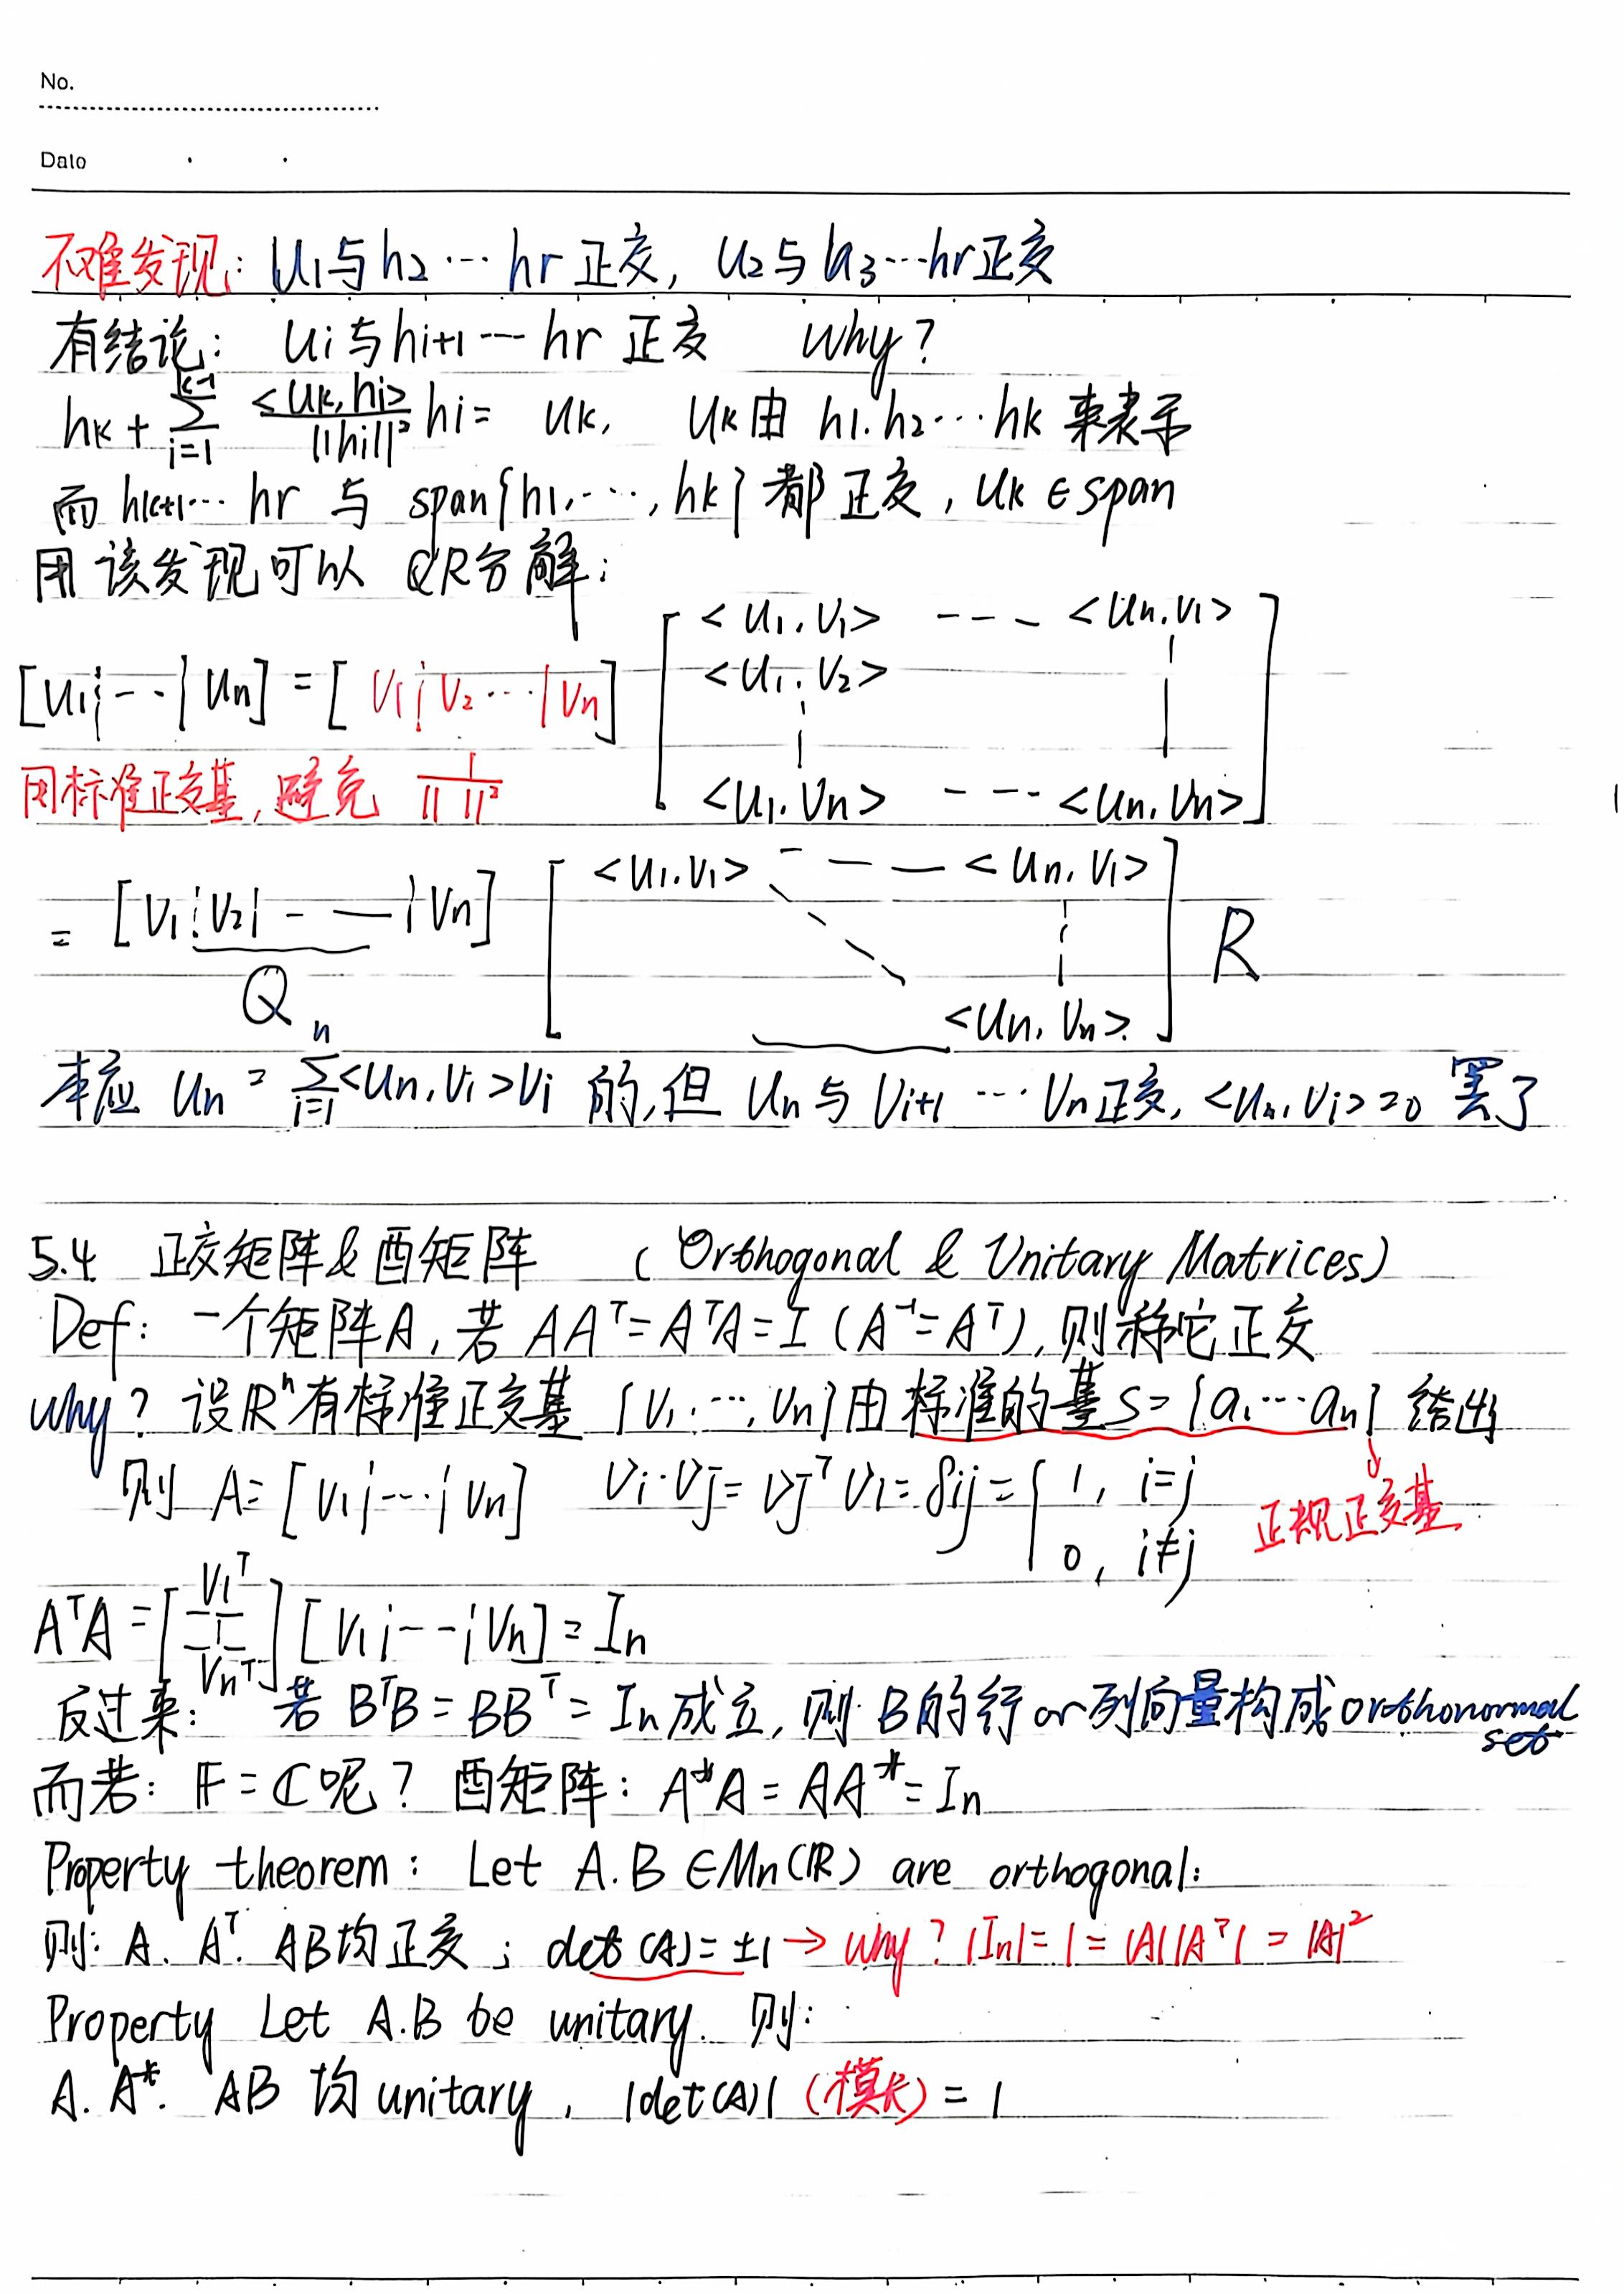 No.
Date
不难发现: u₁与h₂⋯hr正交, u₂与h₃⋯hr正交
有结论: uᵢ与hᵢ₊₁⋯hr 正交 why?
hₖ + ∑ᵢ₌₁ᵏ⁻¹ <uₖ, hᵢ>/||hᵢ||² hᵢ = uₖ, uₖ由 h₁.h₂⋯hₖ 来表示
而 hₖ₊₁⋯ hr 与 span{h₁,⋯, hₖ}都正交, uₖ ∈ span
用该发现可以 QR分解:
[u₁¦--¦uₙ] = [v₁¦v₂⋯¦vₙ] [<u₁,v₁> --- <uₙ,v₁>
<u₁,v₂>
<u₁,vₙ> --- <uₙ,vₙ>]
用标准正交基, 避免 1/|| ||²
= [v₁¦v₂¦- —¦vₙ] [<u₁,v₁> - — — <uₙ,v₁>
<uₙ,vₙ>] R
Q
本应 uₙ = ∑ᵢ₌₁ⁿ<uₙ,vᵢ>vᵢ 的,但 uₙ与vᵢ₊₁ ⋯ vₙ正交, <uₙ,vᵢ>=0 罢了
5.4 正交矩阵&酉矩阵 (Orthogonal & Unitary Matrices)
Def: 一个矩阵A, 若 AAᵀ=AᵀA=I (A⁻¹=Aᵀ), 则称它正交
why? 设ℝⁿ有标准正交基 {v₁,⋯,vₙ}由标准的基S={a₁⋯aₙ} 给出
则 A=[v₁¦--¦vₙ] vᵢ·vⱼ=vⱼᵀvᵢ=δij={1, i=j
0, i≠j
正规正交基
AᵀA=[v₁ᵀ
vₙᵀ] [v₁¦--¦vₙ]=Iₙ
反过来: 若 BᵀB=BBᵀ=Iₙ成立, 则 B的行or列向量构成orthonormal
set
而若: 𝔽=ℂ呢? 酉矩阵: A*A=AA*=Iₙ
Property theorem: Let A.B ∈Mn(ℝ) are orthogonal:
则: A. Aᵀ. AB均正交; det(A)=±1 → why? |Iₙ|=1=|A||Aᵀ|=|A|²
Property Let A.B be unitary. 则:
A. A*. AB 均unitary, |det(A)| (模长) = 1